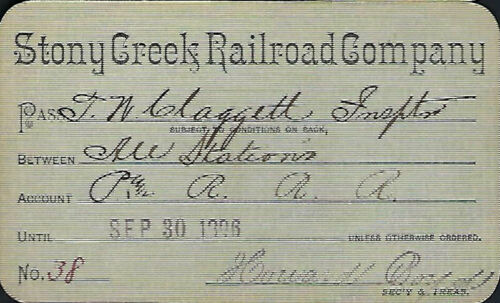 Stony Creek Railroad Company
PASS T. W. Claggett Insptr
SUBJECT TO CONDITIONS ON BACK,
BETWEEN All Stations
ACCOUNT R. R. R.
UNTIL SEP 30 UNLESS OTHERWISE ORDERED.
No. 38 Howard
SEC'Y & TREAS.